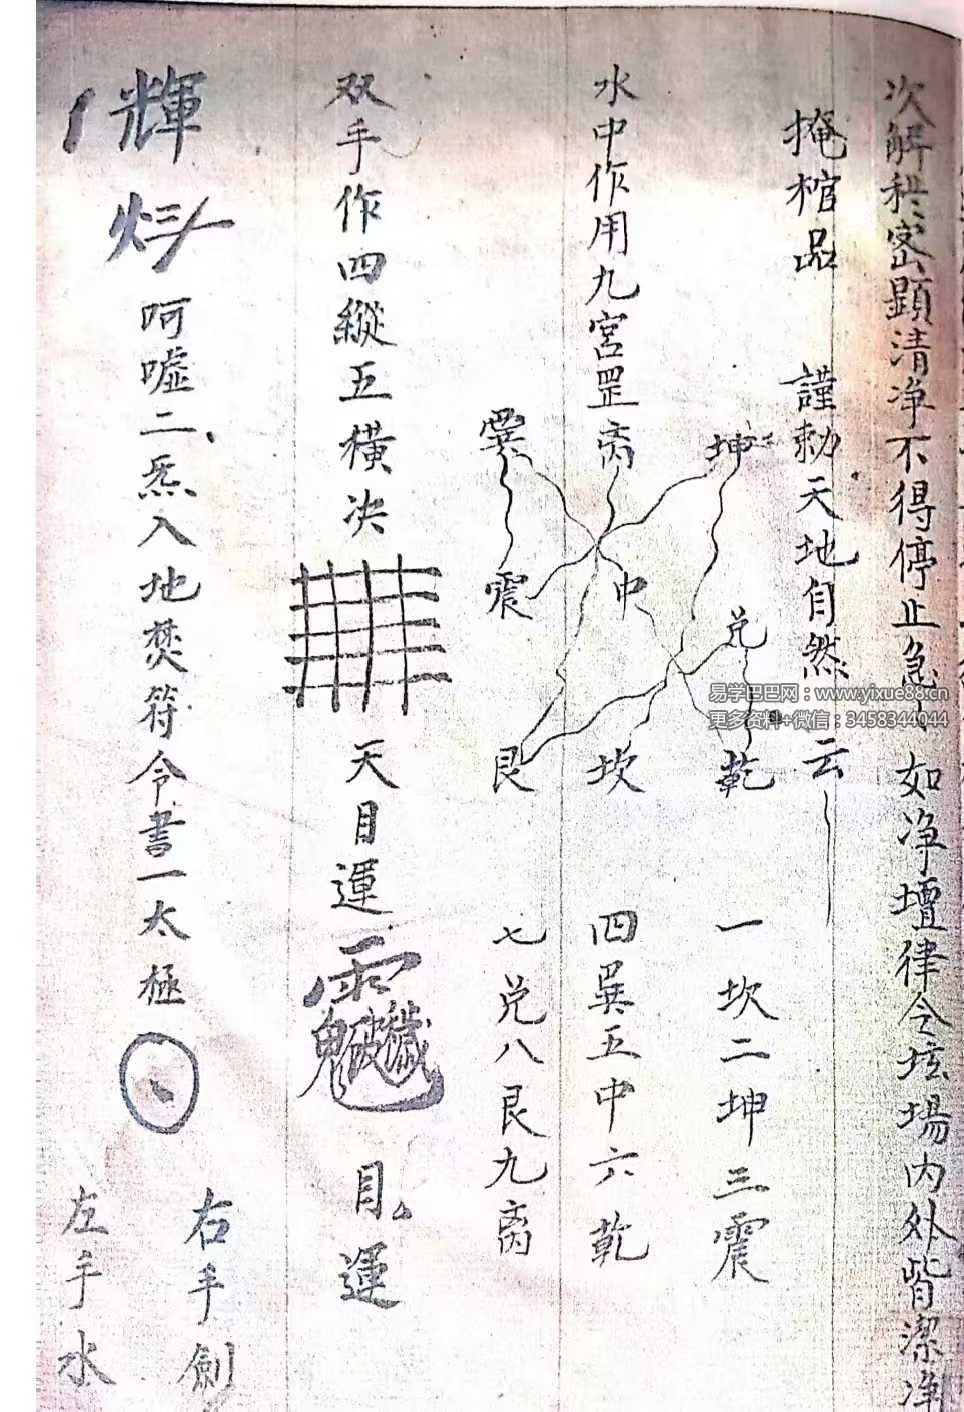 次解秽密顕清净不得停止急〻如净壇律令坛場内外皆潔净
掩棺品 謹勅天地自然云
水中作用九宮罡
离
坤
巽
震
中
兑
艮
坎
乾
一坎二坤三震
四巽五中六乾
七兑八艮九离
双手作四縱五橫决 天目運 目運
輝 呵嘘二炁入地焚符令書一太極
右手劍
左手水
易学巴巴网：www.yixue88.cn
更多资料+微信：3458344044